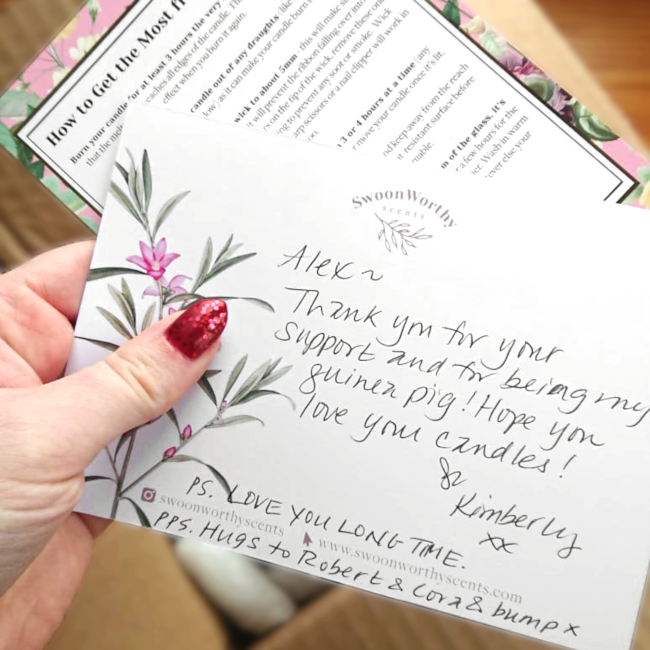 How to Get the Most f
Burn your candle for at least 3 hours the very
that the me
reaches all edges of the candle. Th
effect when you burn it again.
candle out of any draughts
as it can make your candle burn
wick to about 5mm
this will make s
will prevent the ribbon falling over into
on the tip of the wick, remove these
ing to prevent any soot or smoke. Wick
arp scissors or a nail clipper will work in
oo.
3 or 4 hours at a time
any
move your candle once it's lit.
nd keep away from the reach
t resistant surface before
mable.
m of the glass, it's
a few hours for the
Wash in warm
ever else your
SwoonWorthy
scents
Alex~
Thank you for your
support and for being my
guinea pig! Hope you
love your candles!
Kimberly
xx
PS. LOVE YOU LONG TIME.
swoonworthyscents www.swoonworthyscents.com
PPS. Hugs to Robert & Cora & bump x